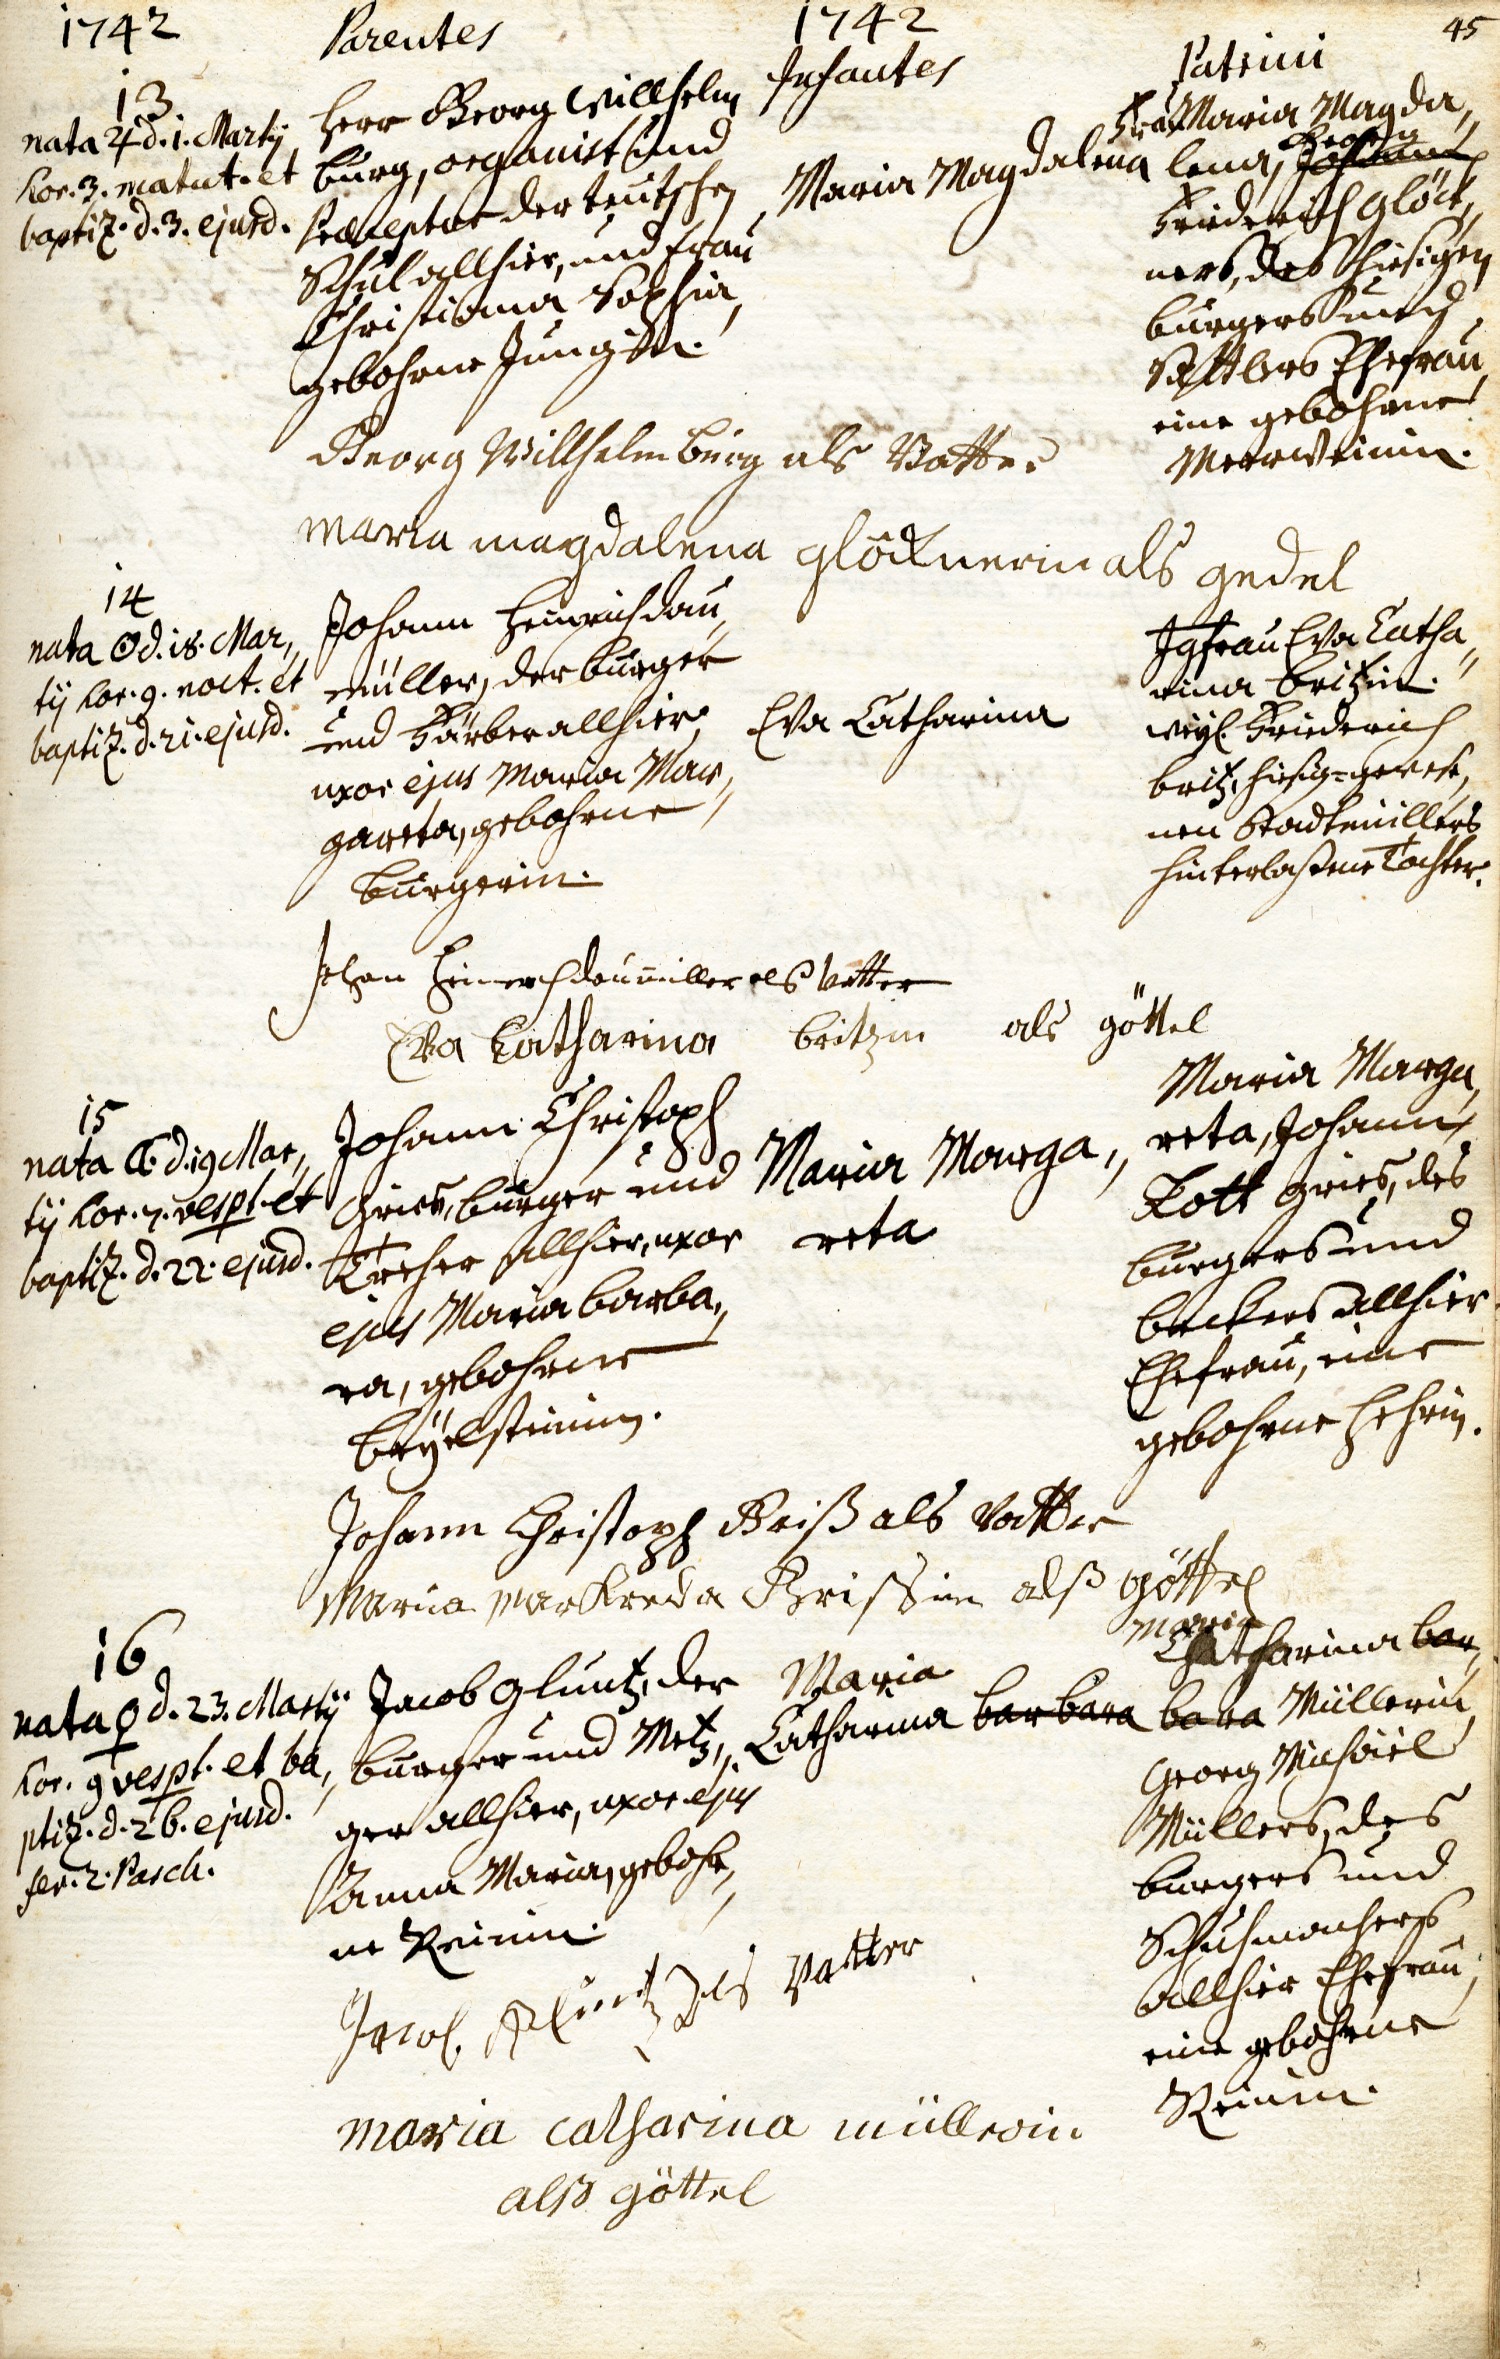 1742 Parentes 1742 45
Infantes Patrini
13
nata ♃ d. 1. Martij
hor. 3. matut. et
baptiz. d. 3. ejusd.
Herr Georg Willhelm
Burg, organist und
Præceptor der teutschen
Schul allhier, und Frau
Christiana Sophia,
gebohrne Jungin.
Maria Magdalena
Frau Maria Magda„
lena, Georg Johann
Friederich Glöck„
ners, des hiesigen
burgers und
Sattlers Ehefrau,
eine gebohrne
Meerweinin.
Georg Willhelm Burg als Vatter
maria magdalena glöcknerin als gedel
14
nata ☉ d. 18. Mar„
tij hor. 9. noct. et
baptiz. d. 21. ejusd.
Johann Heinrich Dau„
müller, der burger
und Färber allhier,
uxor ejus Maria Mar„
gareta, gebohrne
Burgerin.
Eva Catharina
Jgfrau Eva Catha„
rina Britzin.
weyl. Friederich
Britz, hiesig=gewese„
nen Stadtmüllers
hinterlaßene Tochter.
Johan Heinerich Daumiller als vatter
Eva Catharina britzin als göttel
15
nata ☾ d. 19 Mar„
tij hor. 7. vespt. et
baptiz. d. 22. ejusd.
Johann Christoph
Gries, burger und
allhier, uxor
ejus Maria Barba„
ra, gebohrne
Beyelsteinin.
Maria Marga„
reta
Maria Marga„
reta, Johann
Lott Gries, des
burgers und
beckers allhier
Ehefrau, eine
gebohrne Hehrin.
Johann Christoph Griß als Vatter
Maria Markreda Grissin alß göttel
16
nata ♀ d. 23. Martij
hor. 9 vespt. et ba„
ptiz. d. 26. ejusd.
fer. 2. Pasch.
Jacob Gluntz, der
burger und Metz„
ger allhier, uxor ejus
Anna Maria, gebohr„
ne Reinin.
Maria
Catharina barbara
Maria
Catharina bar„
bara Müllerin,
Georg Michael
Müllers, des
burgers und
Schuhmachers
allhier Ehefrau,
eine gebohrne
Reinin.
Jacob Gluntz als Vatter
maria catharina müllerin
alß göttel